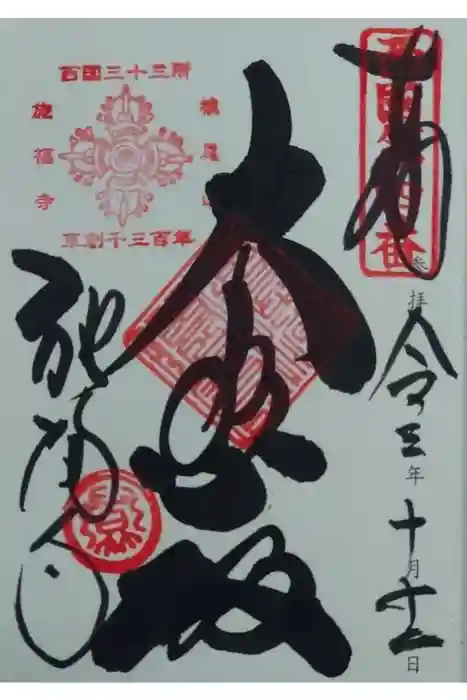 西国第四番
奉
参拝
令和三年十月廿二日
大悲殿
西国三十三所
槇尾山
施福寺
草創千三百年
施福寺